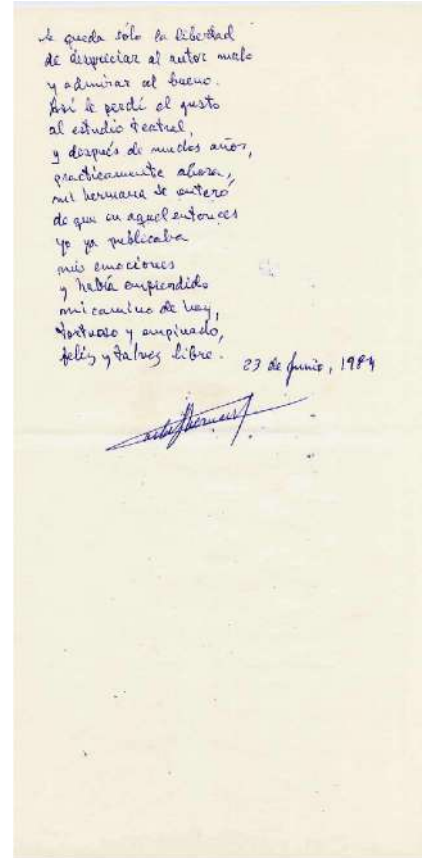 le queda sólo la libertad
de despreciar al autor malo
y admirar al bueno.
Así le perdí el gusto
al estudio teatral,
y después de muchos años,
prácticamente ahora,
mi hermana se enteró
de que en aquel entonces
yo ya publicaba
mis emociones
y había emprendido
mi camino de hoy,
tortuoso y empinado,
feliz y talvez libre.
23 de Junio, 1984